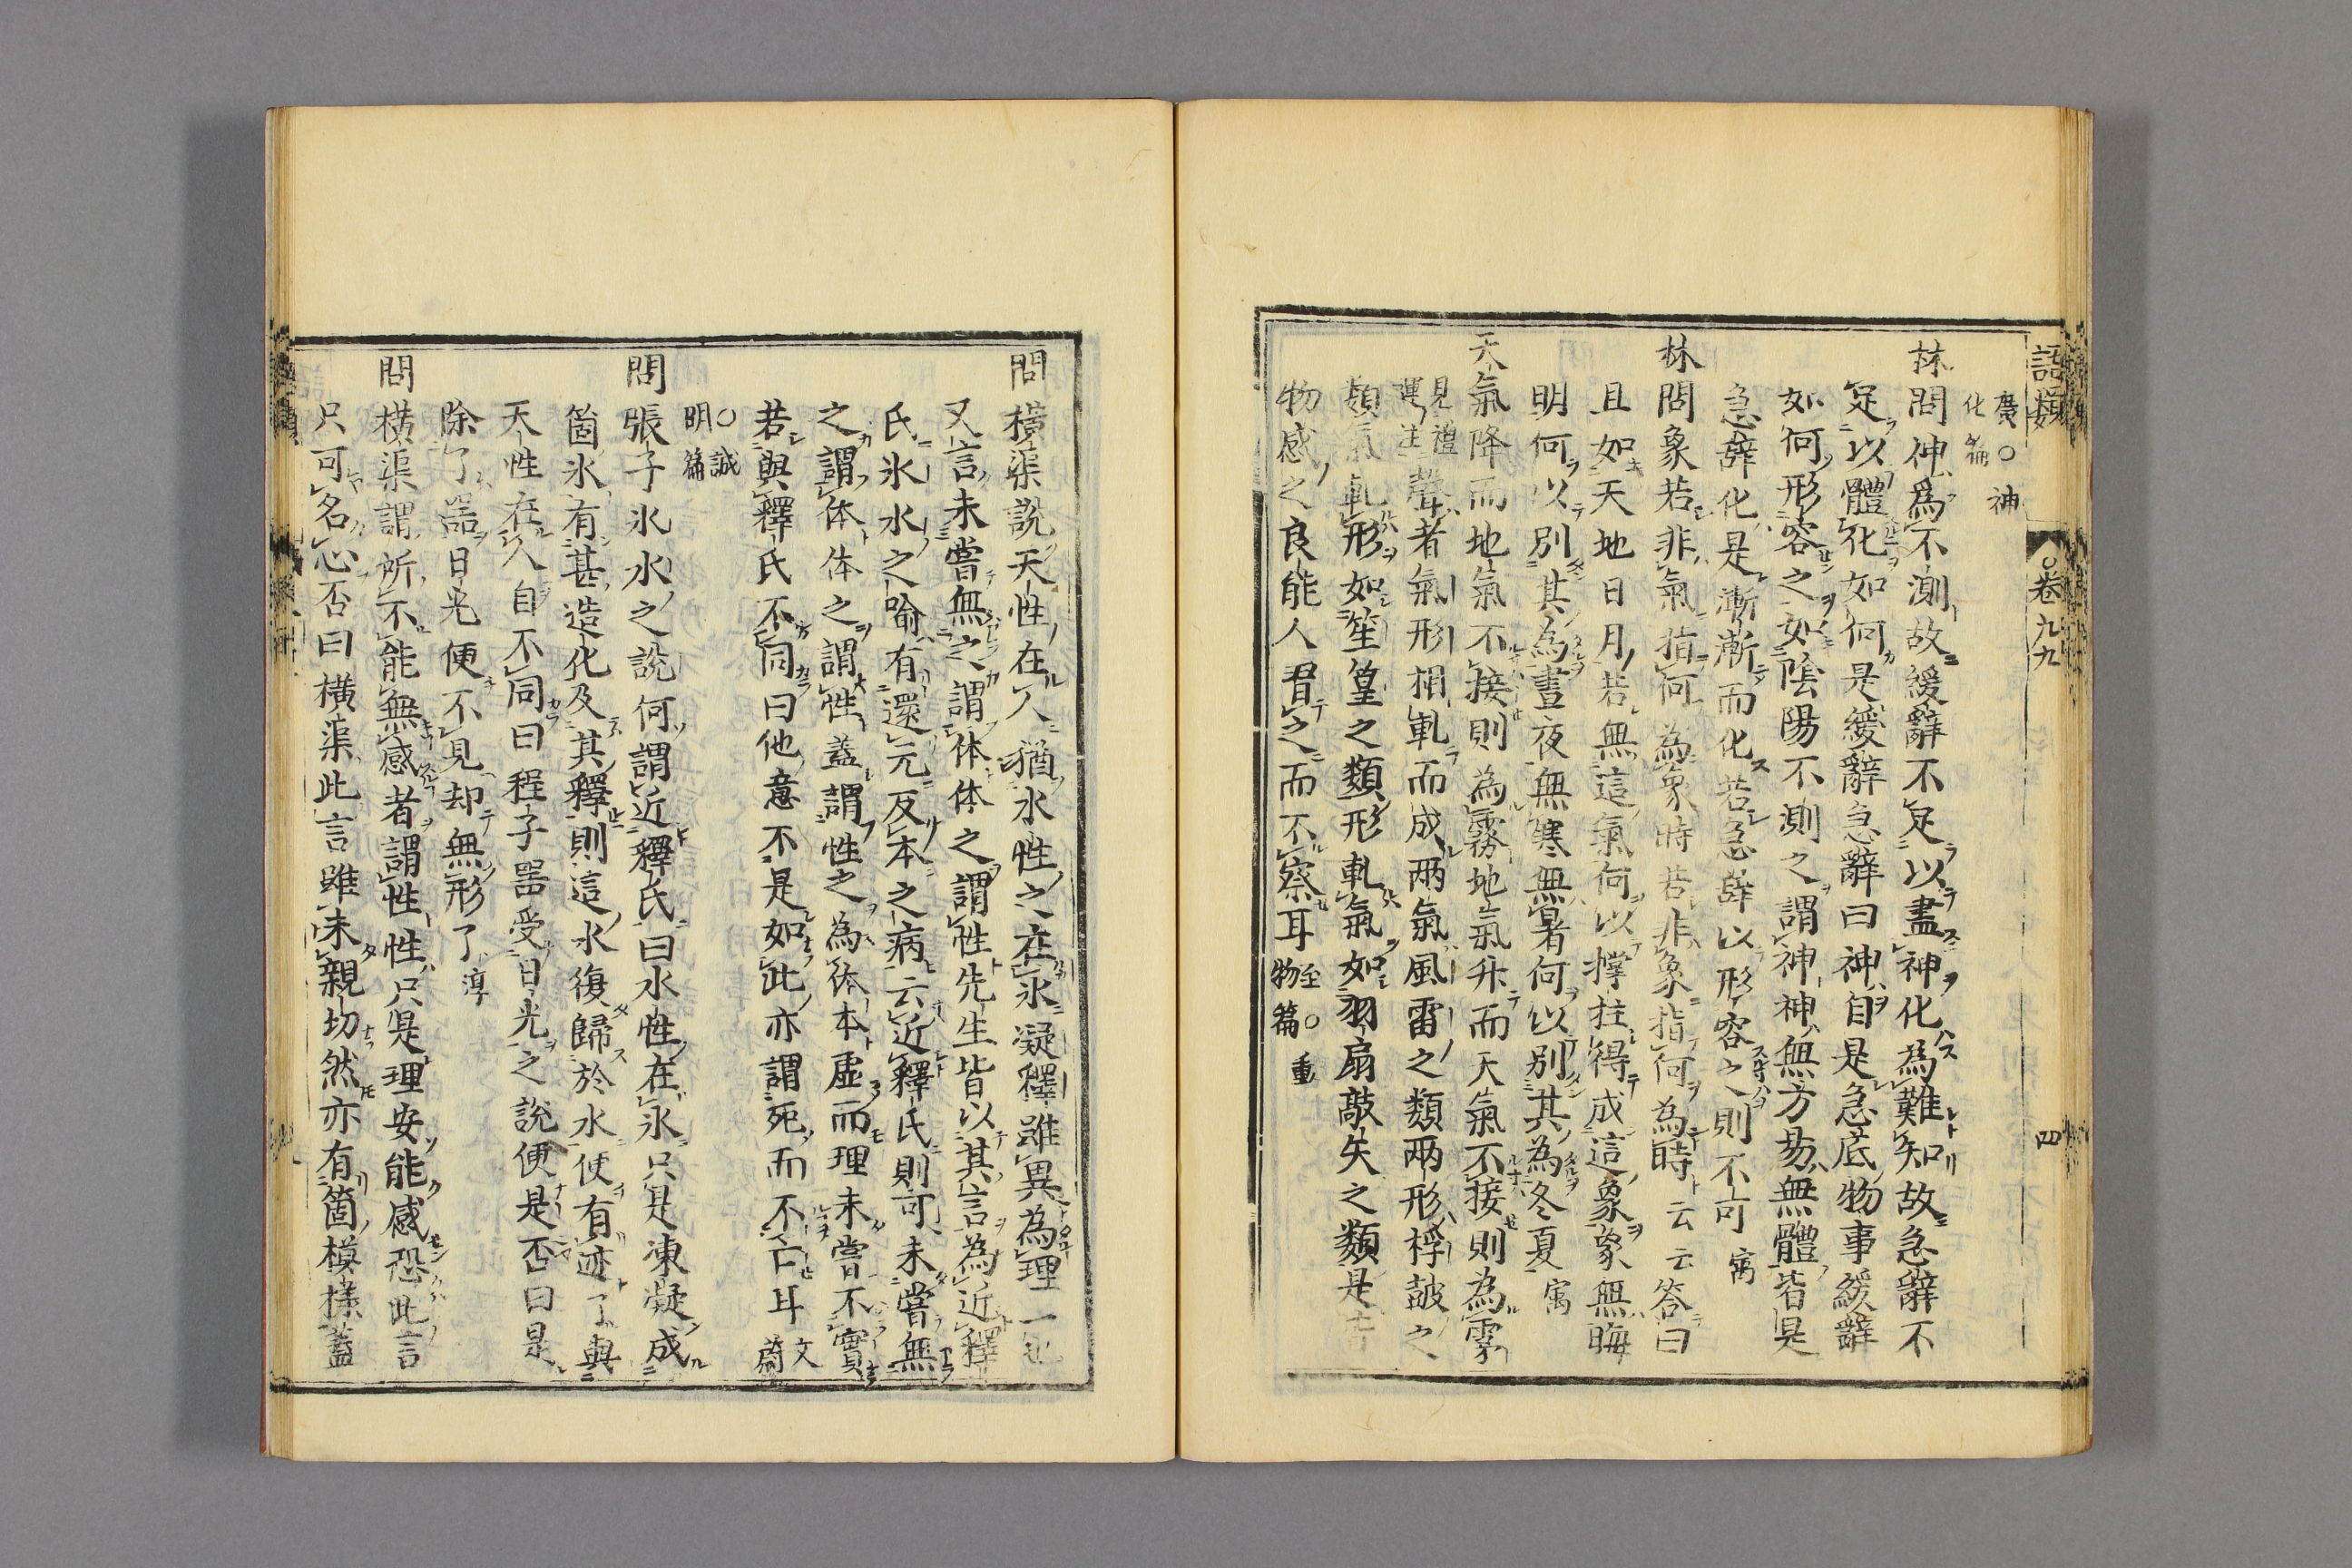 語類 ○卷九九 四
廣○神
化篇
林問神爲不測故緩辭不足以盡神化為難知故急辭不
足以體化如何是緩辭急辭曰神自是急底物事緩辭
如何形容之如陰陽不測之謂神神無方易無體皆是
急辭化是漸漸而化若急辭以形容之則不可㝢
林問象若非氣指何為象時若非象指何為時云云答曰
且如天地日月若無這氣何以撑拄得成這象象無晦
明何以別其為晝夜無寒無暑何以別其為冬夏㝢
天氣降而地氣不接則為霧地氣升而天氣不接則為雺
見禮運注 聲者氣形相軋而成兩氣風雷之類兩形桴鼓之
類氣軋形如笙簧之類形軋氣如羽扇敲矢之類是
物感之良能人習之而不察耳至物篇○重
問橫渠說天性在人猶水性之在氷凝釋雖異為理一也
又言未嘗無之謂体体之謂性先生皆以其言為近釋
氏氷水之喻有還元反本之病云近釋氏則可未嘗無
之謂体体之謂性蓋謂性之為体本虛而理未嘗不實
若與釋氏不同曰他意不是如此亦謂死而不亡耳文蔚
○誠明篇
問張子氷水之說何謂近釋氏曰水性在氷只是凍凝成
箇氷有甚造化及其釋則這氷復歸於水便有迹了與
天性在人自不同曰程子噐受日光之說便是否曰是
除了噐日光便不見却無形了淳
問橫渠謂所不能無感者謂性性只是理安能感恐此言
只可名心否曰橫渠此言雖未親切然亦有箇模樣蓋